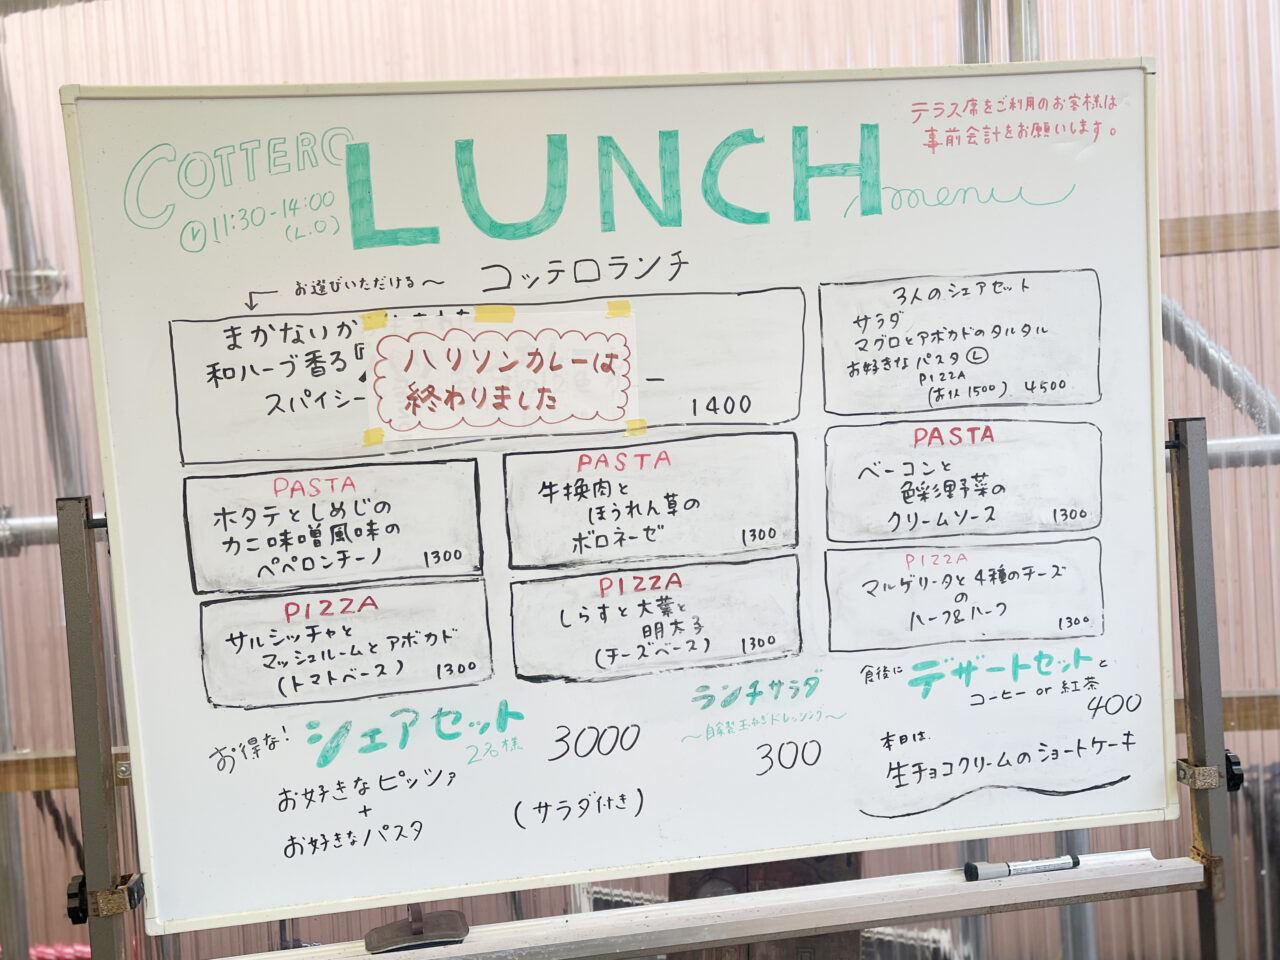 COTTERO
LUNCH
menu
11:30-14:00
(L.O)
テラス席をご利用のお客様は
事前会計をお願いします。
お選びいただける〜
コッテロランチ
まかないか
和ハーブ香る
スパイシー
1400
ハリソンカレーは
終わりました
3人のシェアセット
サラダ
マグロとアボカドのタルタル
お好きなパスタ Ⓛ
PIZZA
(お1人1500) 4500
PASTA
ホタテとしめじの
カニ味噌風味の
ペペロンチーノ 1300
PASTA
牛挽肉と
ほうれん草の
ボロネーゼ 1300
PASTA
ベーコンと
色彩野菜の
クリームソース 1300
PIZZA
サルシッチャと
マッシュルームとアボカド
(トマトベース) 1300
PIZZA
しらすと大葉と
明太子
(チーズベース) 1300
PIZZA
マルゲリータと4種のチーズ
の
ハーフ&ハーフ
1300
お得な!
シェアセット
2名様
3000
お好きなピッツァ
+
お好きなパスタ
(サラダ付き)
ランチサラダ
〜自家製玉ねぎドレッシング〜
300
食後に
デザートセットと
コーヒー or 紅茶
400
本日は
生チョコクリームのショートケーキ